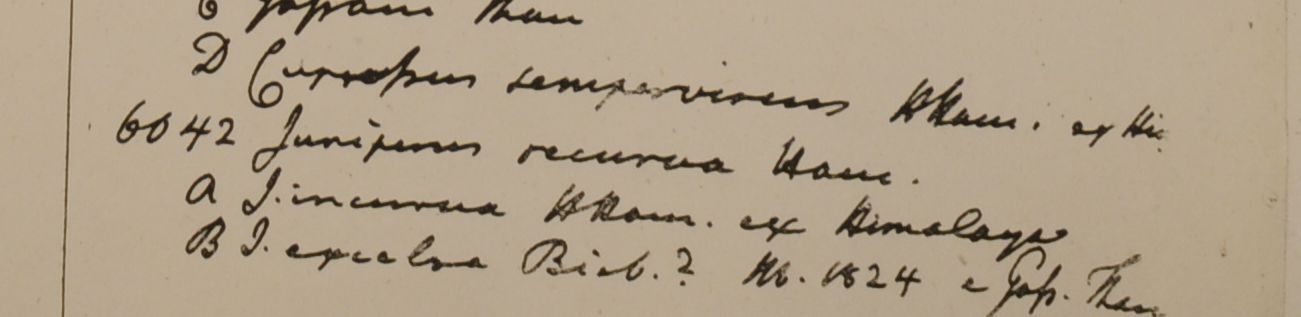 C Gossam Than
D Cupressus sempervirens HHam. ex Hi
6042 Juniperus recurva Ham.
A J. incurva HHam. ex Himalaya
B J. excelsa Bieb.? Hb. 1824 e Gofs. Than